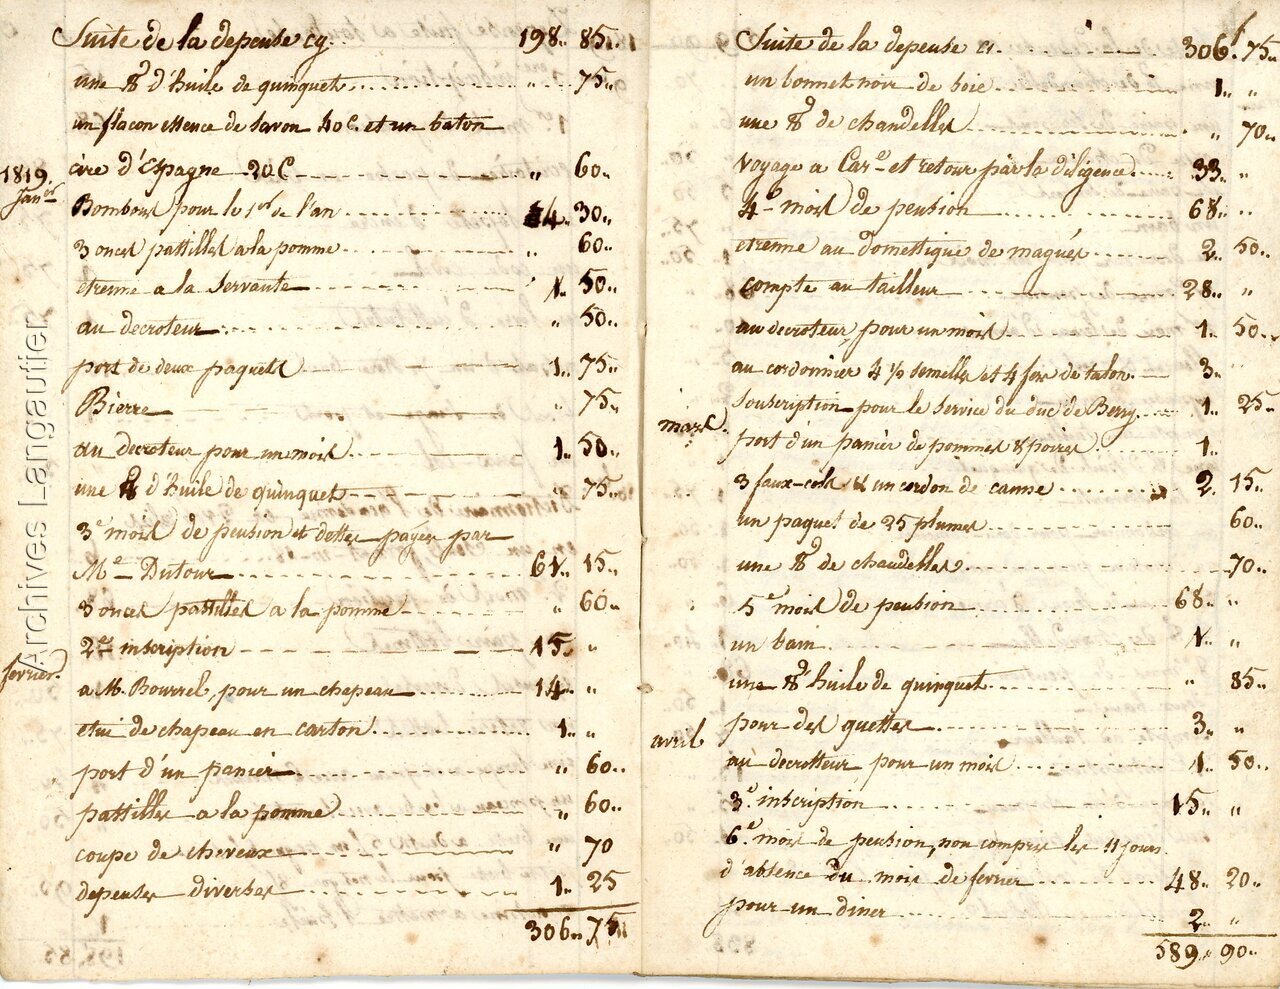 Suite de la depense cy. 198.. 85..
une lb d'huile de quinquet " 75..
un flacon essence de savon 40 C. et un baton
cire d'Espagne 20 C " 60..
1819.
Janer
Bombons pour le 1er de l'an 14.. 30..
3 onces pattilles a la pomme " 60..
etrenne a la servante 1.. 50..
au decroteur " 50..
port de deux paquets 1.. 75..
Bierre " 75..
au decroteur pour un mois 1.. 50..
une lb d'huile de quinquet " 75..
3e mois de pension et dettes payées par
Me Dutour 61.. 15..
3 onces pattilles a la pomme " 60..
2e inscription 15.. "
fevrier.
a M. Bourrel, pour un chapeau 14.. "
etui de chapeau en carton 1.. "
port d'un panier " 60..
pattilles a la pomme " 60..
coupe de cheveux " 70
depenses diverses 1.. 25
306.. 75..
Suite de la depense ci 306f 75..
un bonnet noir de soie 1.. "
une lb de chandelles " 70..
voyage a Car.e et retour par la diligence 33.. "
4e mois de pension 68.. "
etrenne au domestique de magués 2.. 50..
compte au tailleur 28.. "
au decroteur, pour un mois 1.. 50..
au cordonnier 4 1/2 semelles et 4 fers de talon 3.. "
souscription pour le service du duc de Berry 1.. 25..
mars.
port d'un panier de pommes & poires 1..
3 faux-cols & un cordon de canne 2.. 15..
un paquet de 25 plumes 60..
une lb de chandelles 70..
5e mois de pension 68.. "
un bain 1.. "
une lb huile de quinquet " 85..
pour des guettes 3.. "
avril
au decrotteur pour un mois 1.. 50..
3e inscription 15.. "
6e mois de pension, non compris les 11 jours
d'absence du mois de fevrier 48.. 20..
pour un diner 2.. "
589.. 90..
Archives Langautier